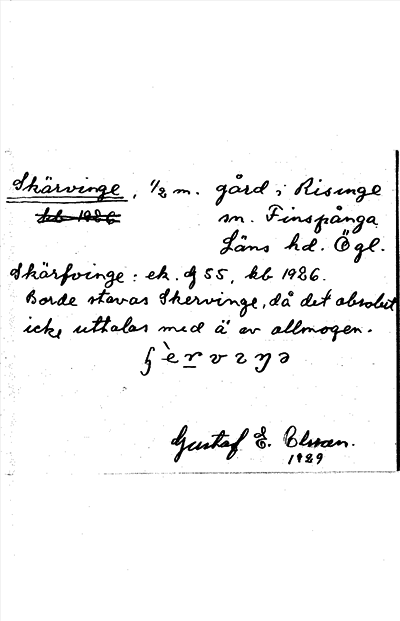 Skärvinge, 1/2 m. gård i Risinge
kb 1926
sn. Finspånga
Läns hd. Ögl.
Skärfvinge: ek. 55, kb 1926.
Borde stavas Skervinge, då det absolut
icke uttalas med ä av allmogen.
Gustaf E. Olsson.
1929